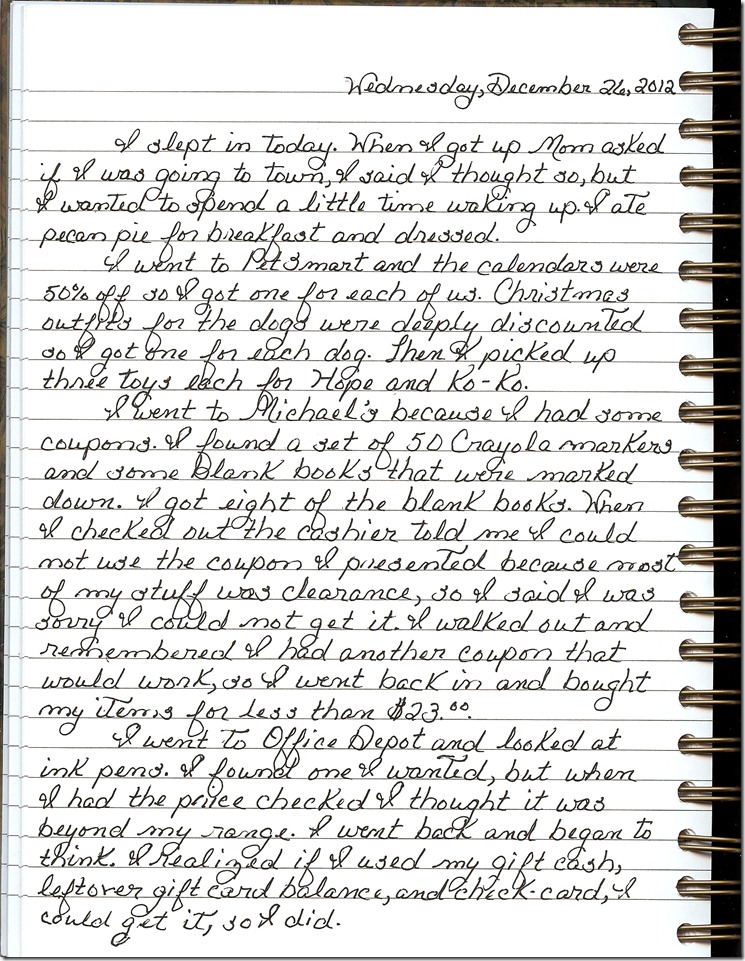 Wednesday, December 26, 2012
I slept in today. When I got up Mom asked
if I was going to town, I said I thought so, but
I wanted to spend a little time waking up. I ate
pecan pie for breakfast and dressed.
I went to PetSmart and the calendars were
50% off so I got one for each of us. Christmas
outfits for the dogs were deeply discounted
so I got one for each dog. Then I picked up
three toys each for Hope and Ko-Ko.
I went to Michael's because I had some
coupons. I found a set of 50 Crayola markers
and some blank books that were marked
down. I got eight of the blank books. When
I checked out the cashier told me I could
not use the coupon I presented because most
of my stuff was clearance, so I said I was
sorry I could not get it. I walked out and
remembered I had another coupon that
would work, so I went back in and bought
my items for less than $23.00.
I went to Office Depot and looked at
ink pens. I found one I wanted, but when
I had the price checked I thought it was
beyond my range. I went back and began to
think. I realized if I used my gift cash,
leftover gift card balance, and check-card, I
could get it, so I did.